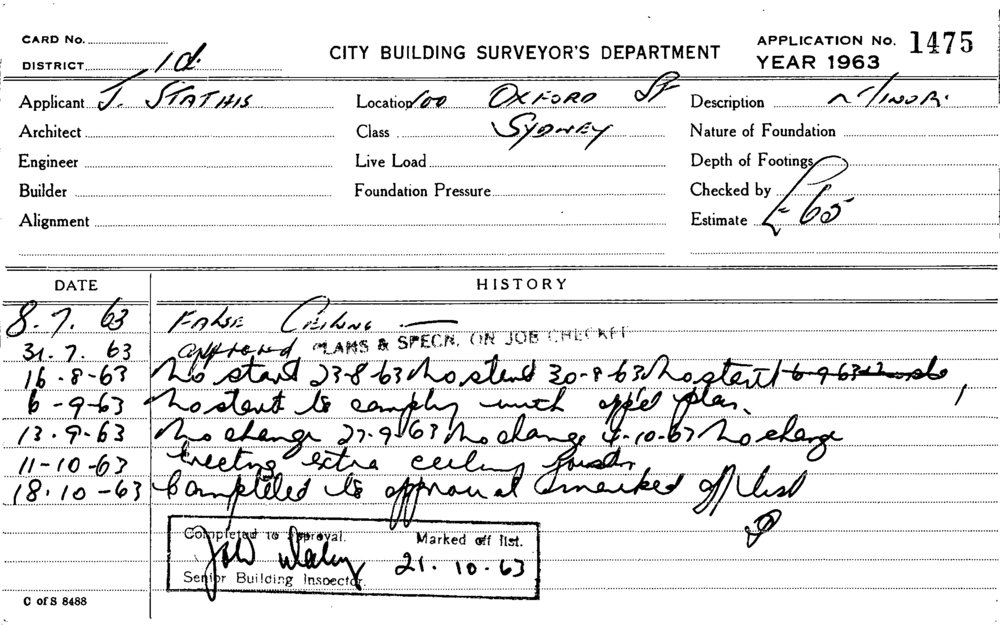 CARD No.
DISTRICT 1d.
CITY BUILDING SURVEYOR'S DEPARTMENT
APPLICATION No. 1475
YEAR 1963
Applicant J. STATHIS Location 100 OXFORD ST Description MINOR.
Architect Class SYDNEY Nature of Foundation
Engineer Live Load Depth of Footings
Builder Foundation Pressure Checked by
Alignment Estimate £65
DATE HISTORY
8.7.63 FALSE CEILING —
31.7.63 approved PLANS & SPECN. ON JOB CHECKED
16-8-63 No start 23-8-63 No start 30-8-63 No start 6-9-63
6-9-63 No start to comply with app'd plan.
13.9-63 No change 27-9-63 No change 4-10-63 No change
11-10-63 Erecting extra ceiling
18.10-63 Completed to approval marked off list
Completed to approval. Marked off list.
21.10.63
Senior Building Inspector.
C of S 8488